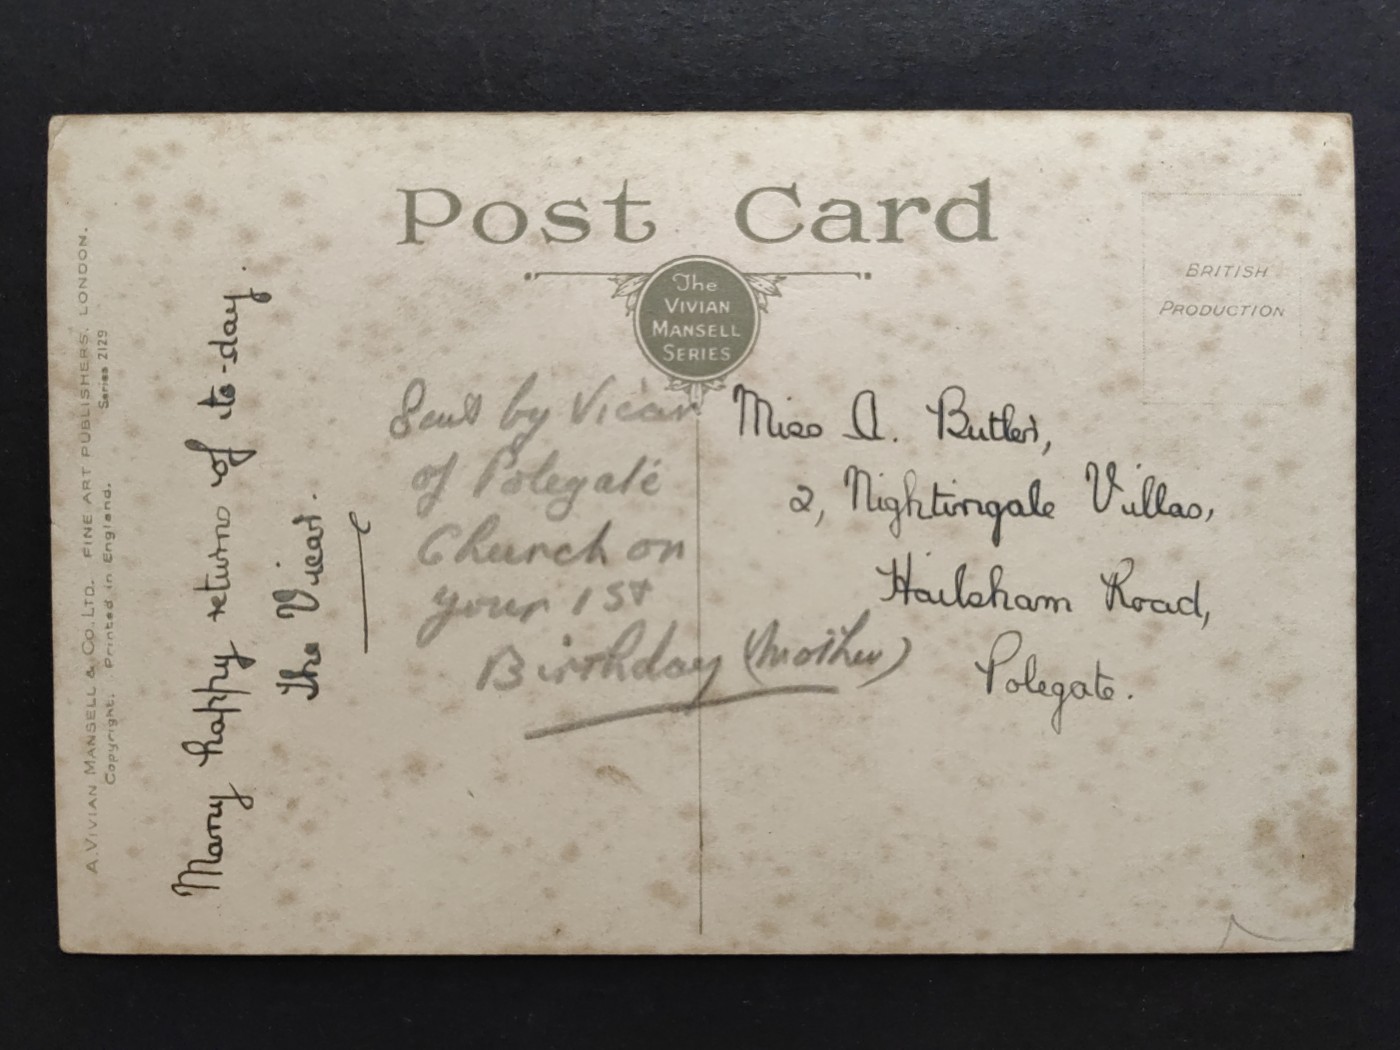 Post Card
The
VIVIAN
MANSELL
SERIES
BRITISH
PRODUCTION
A VIVIAN MANSELL & CO. LTD. FINE ART PUBLISHERS. LONDON.
Copyright. Printed in England. Series 2129
Many happy returns of to-day.
The Vicar.
Sent by Vicar
of Polegate
Church on
your 1st
Birthday (Mother)
Miss A. Butler,
2, Nightingale Villas,
Hailsham Road,
Polegate.